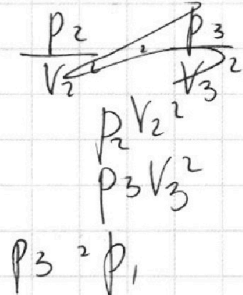 p₂/V₂ = p₃/V₃
p₂V₂²
p₃V₃²
p₃ = p₁